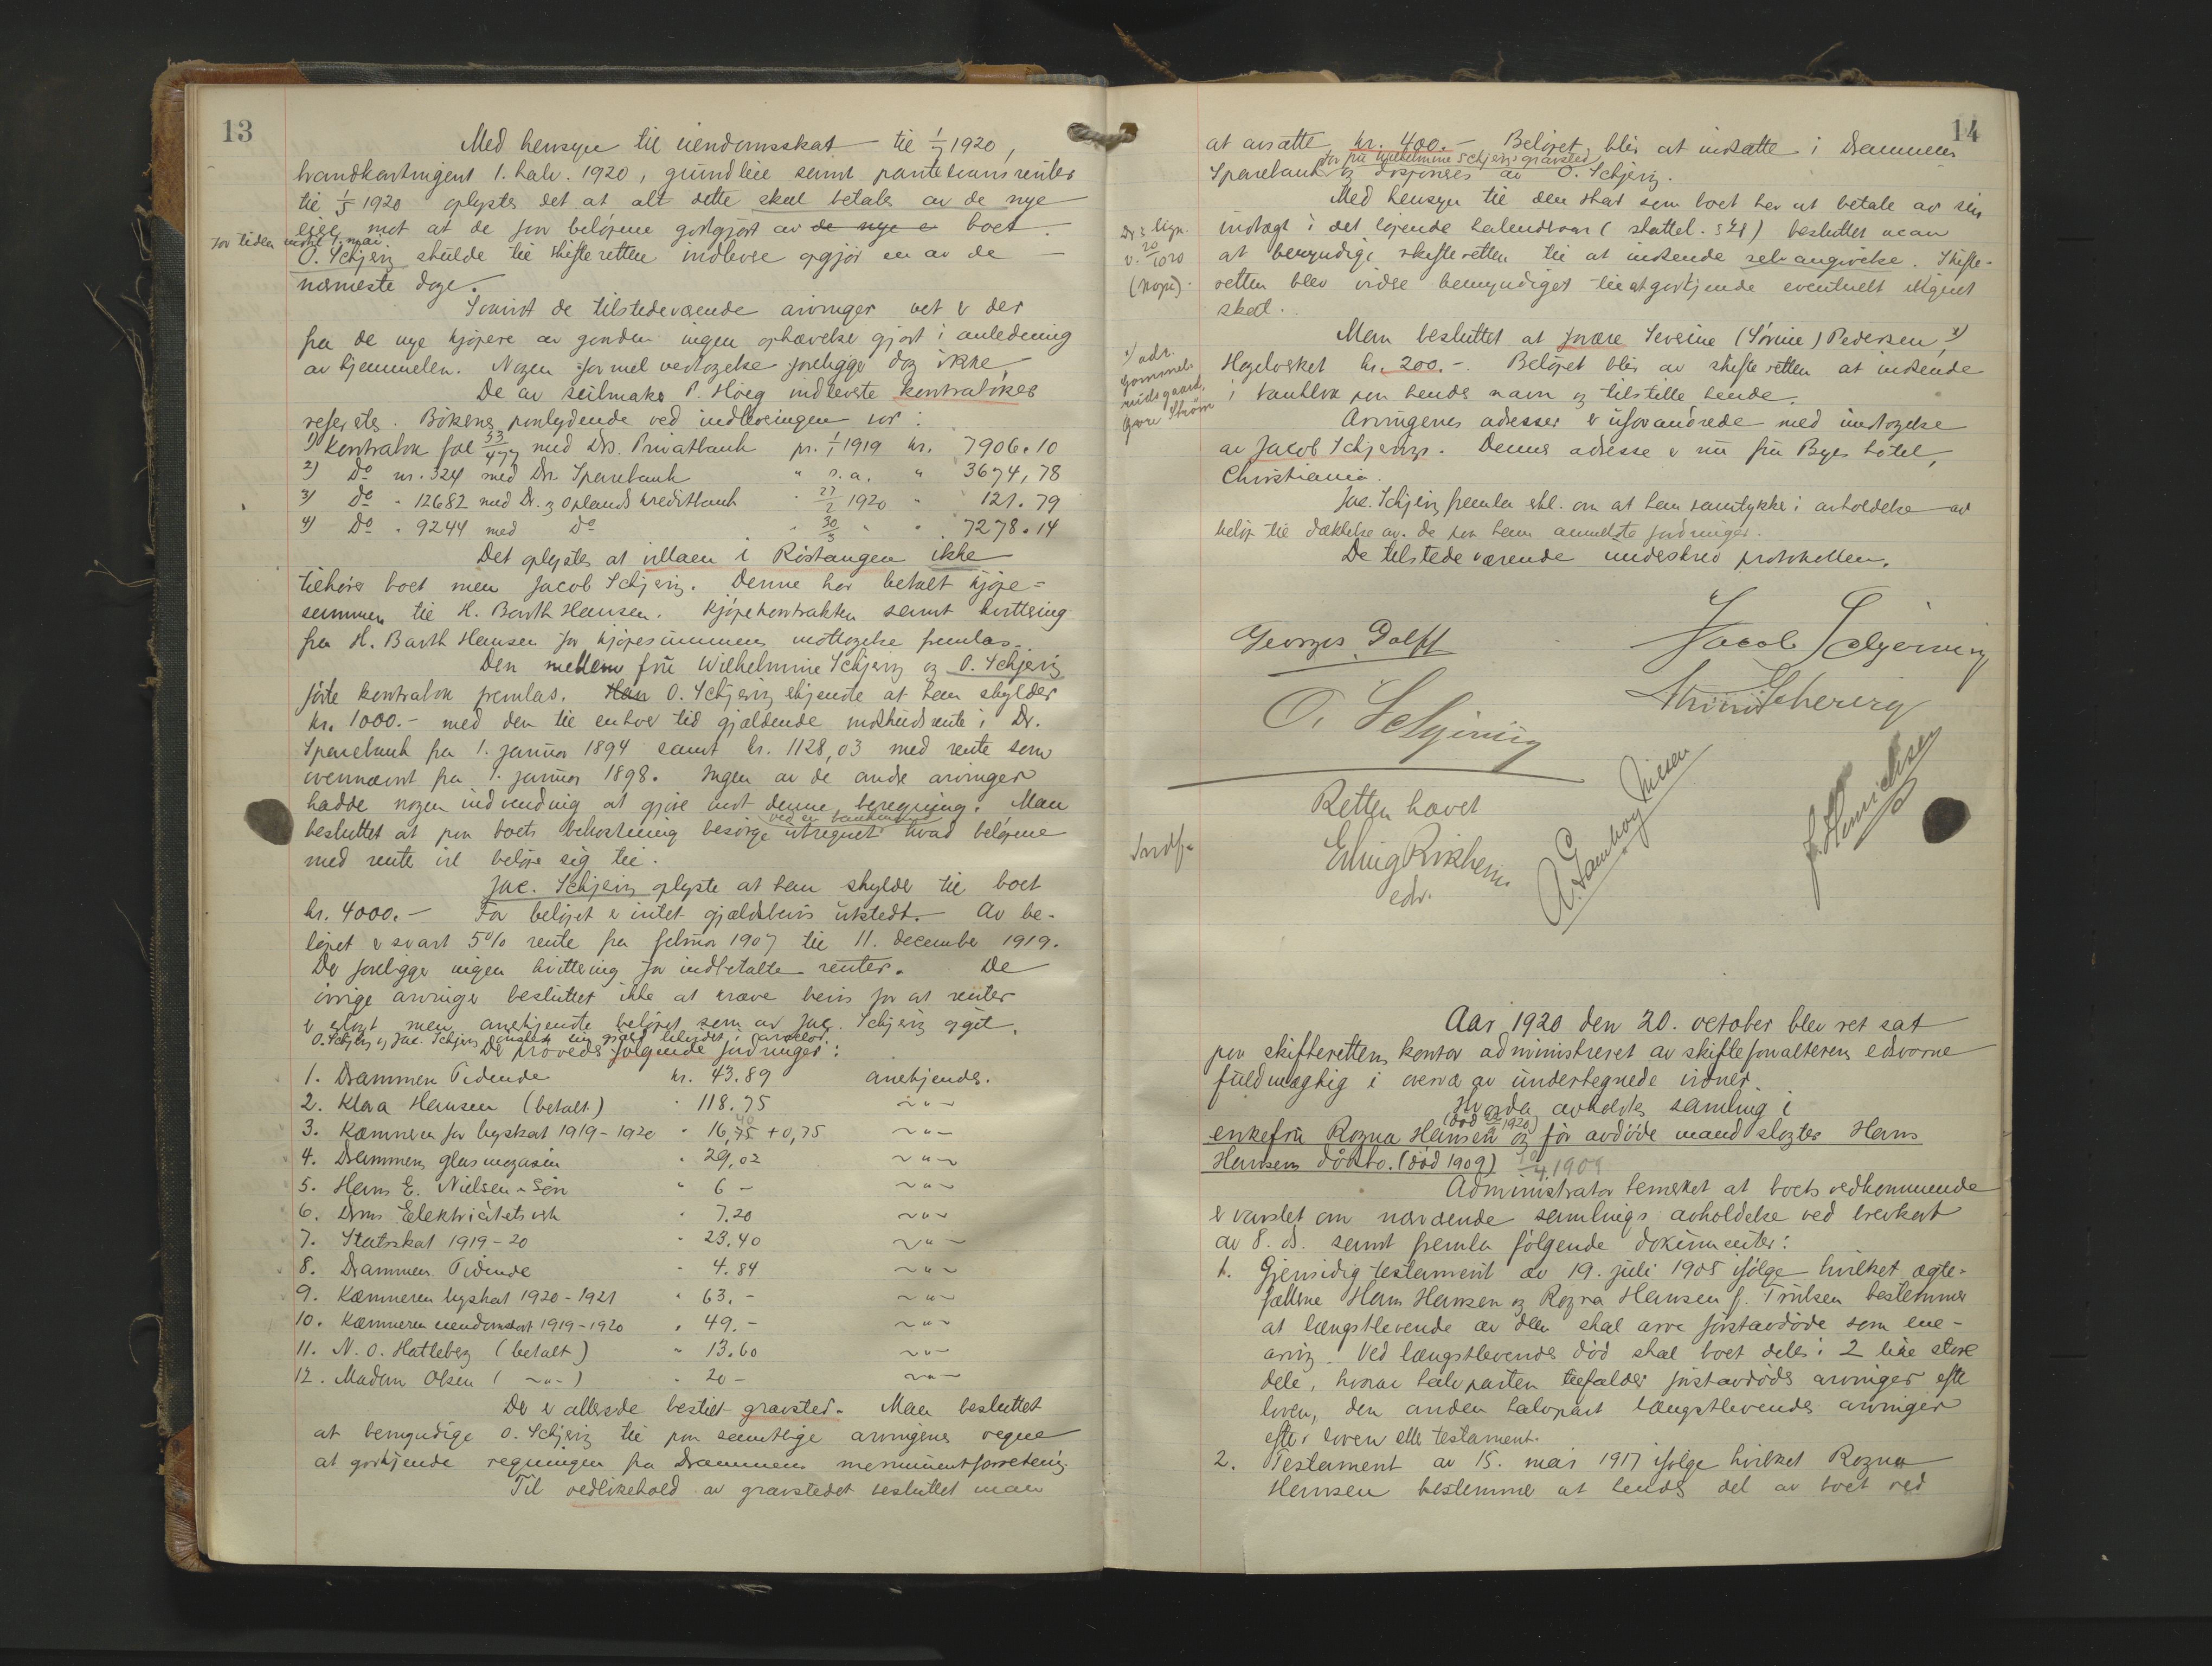 13
Med hensyn til eiendomsskat til 1/7 1920,
brandkontingent 1. halv. 1920, grundleie samt pantelaansrenter
til 1/5 1920 oplystes det at alt dette skal betales av de nye
eiere mot at de faar beløpene godtgjort av de nye e boet
for tiden indtil 1. mai.
O. Schjerig skulde til skifteretten indlevere opgjør en av de
nærmeste dage.
Såvidt de tilstedeværende arvinger vet er der
fra de nye kjøpere av gaarden ingen ophævelse gjort i anledning
av hjemmelen. Nogen formel vedtagelse foreligger dog ikke.
De av seilmaker P. Höeg indleverte kontrabøker
refereres. Bøkenes paalydende ved indleveringen var:
1) Kontrabok fol 53/477 med Drs. Privatbank pr. 1/1 1919 kr. 7906.10
2) Do nr. 324 med Dr. Sparebank " s.a. " 3674,78
3) Do " 12682 med Dr. og Oplands Kreditbank " 27/2 1920 " 121.79
4) Do " 9244 med Do " 30/3 " " 7278.14
Det oplystes at villaen i Röstangen ikke
tilhører boet men Jacob Schjerig. Denne har betalt kjøpe-
summen til H. Barth Hansen. Kjøpekontrakten samt kvittering
fra H. Barth Hansen for kjøpesummens mottagelse fremlas.
Den mellem fru Wilhelmine Schjerig og O. Schjerig
førte kontrabok fremlas. Han O. Schjerig erkjendte at han skylder
kr. 1000.- med den til enhver tid gjældende indskudsrente i Dr.
Sparebank fra 1. januar 1894 samt kr. 1128,03 med rente som
ovennævnt fra 1. januar 1898. Ingen av de andre arvinger
hadde nogen indvending at gjøre mot denne beregning. Man
ved en bankmand
besluttet at paa boets bekostning besørge utregnet hvad beløpene
med rente vil beløpe sig til.
Jac. Schjerig oplyste at han skylder til boet
kr. 4000.- For beløpet er intet gjældsbevis utstedt. Av be-
løpet er svart 5% rente fra februar 1907 til 11. december 1919.
Der foreligger ingen kvittering for indbetalte renter. De
øvrige arvinger besluttet ikke at kræve bevis for at renter
er erlagt men anerkjendte beløpet som av Jac. Schjerig opgit.
O. Schjerig og Jac. Schjerig ønsket sin gjæld likvidert i arvelod.
Der prøvedes følgende fordringer:
1. Drammen Tidende kr. 43.89 anerkjendes.
2. Klara Hansen (betalt) " 118.75 ~"~
3. Kæmneren for byskat 1919-1920 " 16,75 + 0,75 ~"~
40
4. Drammens glasmagasin " 29,02 ~"~
5. Hans E. Nielsen & Søn " 6 - ~"~
6. Drms Elektricitetsverk " 7.20 ~"~
7. Statsskat 1919-20 " 23.40 ~"~
8. Drammen Tidende " 4.84 ~"~
9. Kæmneren byskat 1920-1921 " 63.- ~"~
10. Kæmneren eiendomsskat 1919-1920 " 49.- ~"~
11. N. O. Hatleberg (betalt) " 13.60 ~"~
12. Madam Olsen ( ~"~ ) " 20 - ~"~
Der er allerede bestilt gravsted. Man besluttet
at bemyndige O. Schjerig til paa samtlige arvingers vegne
at godkjende regningen fra Drammens monumentforretning.
Til vedlikehold av gravstedet besluttet man
14
at avsætte kr. 400.- Beløpet blir at indsætte i Drammens
for fru Wilhelmine Schjerigs gravsted
Sparebank og disponeres av O. Schjerig.
Med hensyn til den skat som boet har at betale av sin
indtægt i det løpende kalenderaar (skattel. § 28) besluttet man
at bemyndige skifteretten til at indsende selvangivelse. Skifte-
retten blev videre bemyndiget til at godkjende eventuelt utlignet
skat.
Dr.s lign.
v. 20/10 20
(kopi).
Man besluttet at forære Severine (Sørine) Pedersen, x)
Hagelvsket kr. 200.-. Beløpet blir av skifteretten at indsende
i bankbok paa hendes navn og tilstille hende.
x) adr.
Gammels
rudsgaard,
øvre Strøm
Arvingenes adresser er uforandrede med undtagelse
av Jacob Schjerigs. Dennes adresse er nu fru Byes hotel,
Christiania.
Jac. Schjerig fremla erkl. om at han samtykker i avholdelse av
beløp til dækkelse av de paa ham anmeldte fordringer.
De tilstedeværende underskrev protokollen.
Georges Dalfst
Jacob Schjerig
O. Schjerig
Schjerig
Retten hævet
Erling Rikheim
edv.
J. Henrichsen
Indf.
Aar 1920 den 20. october blev ret sat
paa skifterettens kontor administreret av skifteforvalterens edsvorne
fuldmægtig i overvær av undertegnede vidner.
Hvorda avholdtes samling i
enkefru Ragna Hansen og før avdøde mand slagter Hans
Hansens dødsbo. (død 1909) 10/4 1909
Administrator bemerket at boets vedkommende
er varslet om nærværende samlings avholdelse ved brevkort
av 8. ds. samt fremla følgende dokumenter:
1. Gjensidig testament av 19. juli 1905 ifølge hvilket ægte-
fællerne Hans Hansen og Ragna Hansen f. Trulsen bestemmer
at længstlevende av dem skal arve førstavdøde som ene-
arving. Ved længstlevendes død skal boet deles i 2 like store
dele, hvorav halvparten tilfalder førstavdødes arvinger efter
loven, den anden halvpart længstlevendes arvinger
efter loven eller testament.
2. Testament av 15. mai 1917 ifølge hvilket Ragna
Hansen bestemmer at hendes del av boet ved